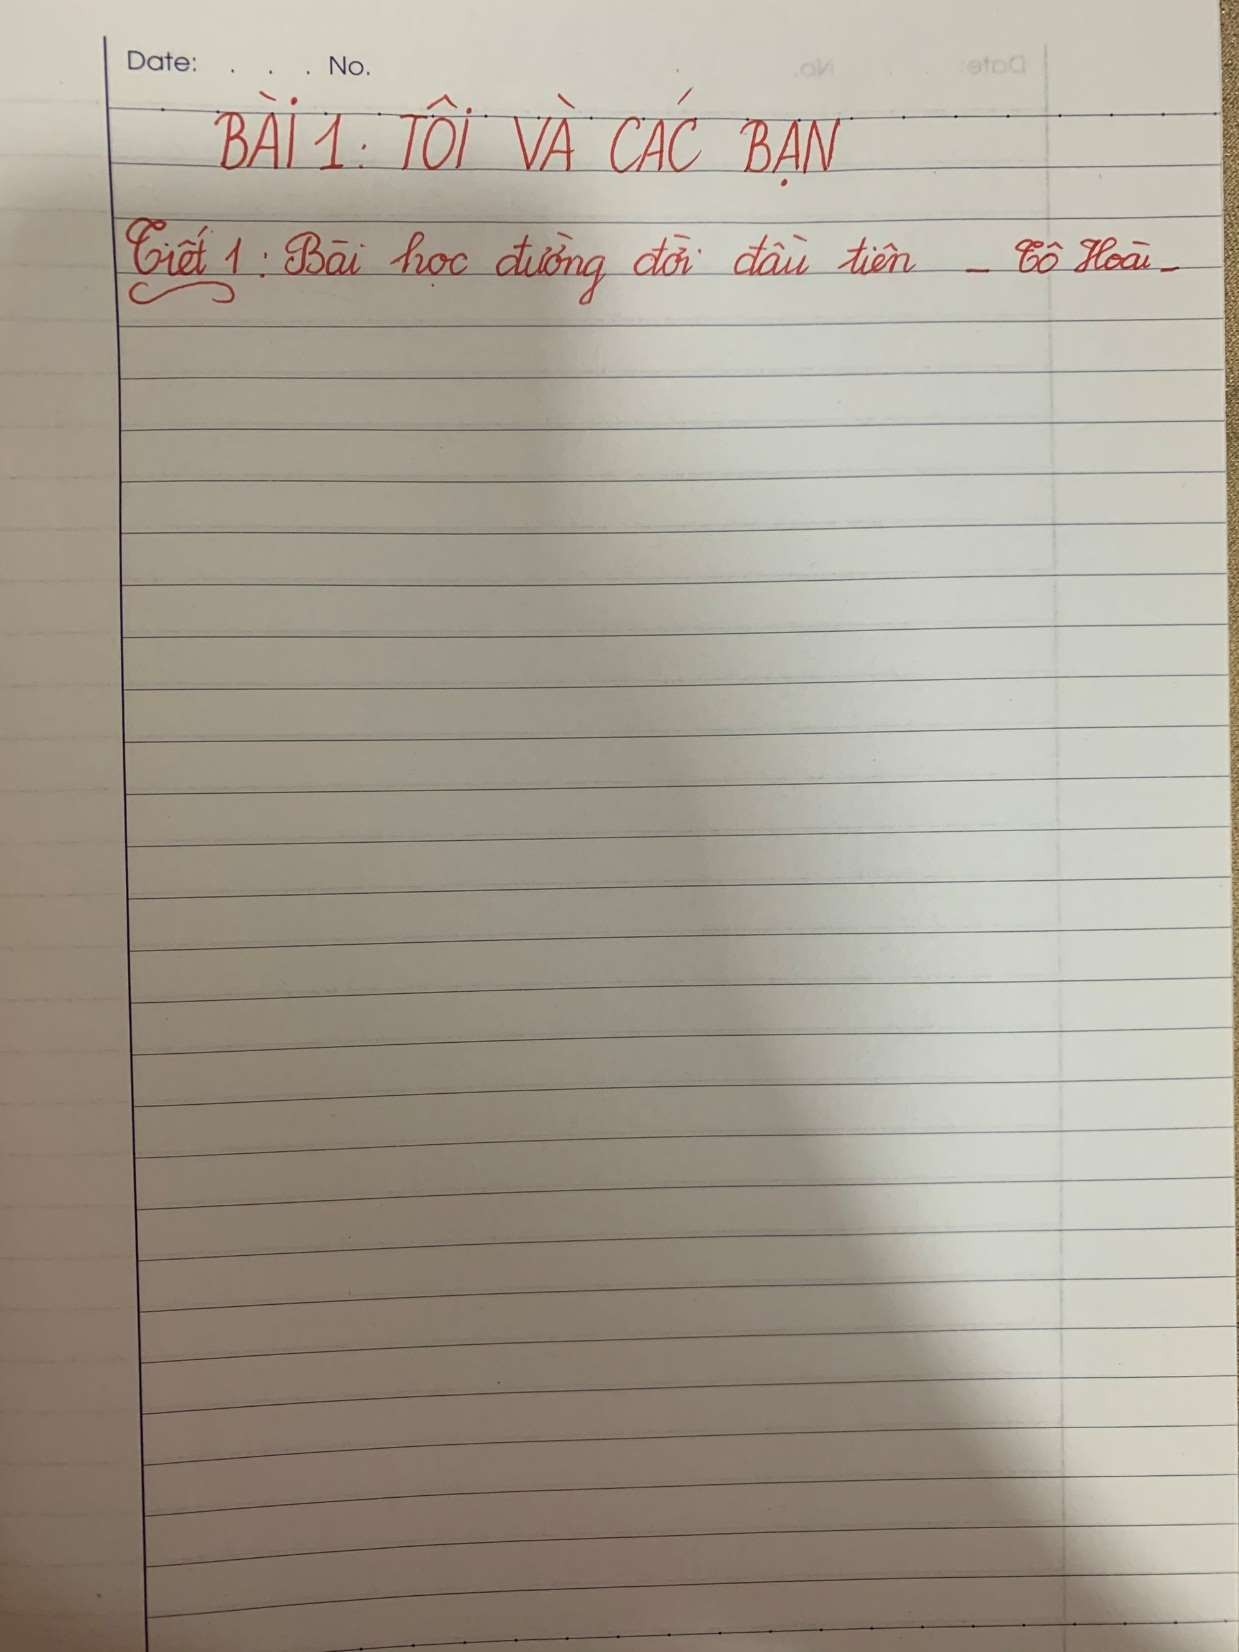 Date: . . . No.
BÀI 1: TÔI VÀ CÁC BẠN
Tiết 1: Bài học đường đời đầu tiên - Tô Hoài -